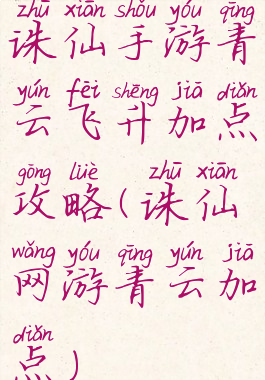 zhū xiān shǒu yóu qīng
诛仙手游青
yún fēi shēng jiā diǎn
云飞升加点
gōng lüè zhū xiān
攻略(诛仙
wǎng yóu qīng yún jiā
网游青云加
diǎn
点)